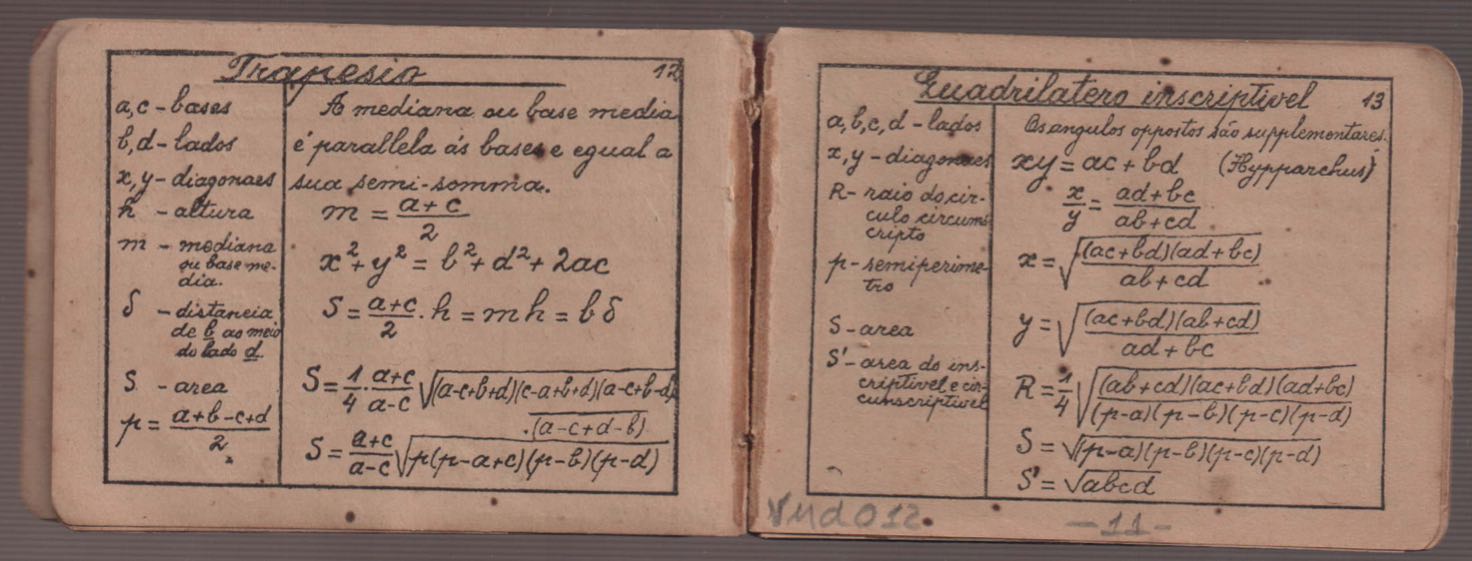 Trapesio
12
a, c - bases
b, d - lados
x, y - diagonaes
h - altura
m - mediana
ou base me-
dia.
δ - distancia
de b ao meio
do lado d.
S - area
p = (a+b-c+d)/2
A mediana ou base media
é parallela ás bases e egual a
sua semi-somma.
m = (a+c)/2
x²+y² = b²+d²+2ac
S = (a+c)/2 . h = mh = bδ
S = 1/4 . (a+c)/(a-c) √(a-c+b+d)(c-a+b+d)(a-c+b-d)
.(a-c+d-b)
S = (a+c)/(a-c) √p(p-a+c)(p-b)(p-d)
Quadrilatero inscriptivel
13
a, b, c, d - lados
x, y - diagonaes
R - raio do cir-
culo circums
cripto
p - semiperime-
tro
S - area
S' - area do ins-
criptivel e cir-
cunscriptivel
Os angulos oppostos são supplementares.
xy = ac + bd (Hypparchus)
x/y = (ad+bc)/(ab+cd)
x = √((ac+bd)(ad+bc)/(ab+cd))
y = √((ac+bd)(ab+cd)/(ad+bc))
R = 1/4 √((ab+cd)(ac+bd)(ad+bc)/((p-a)(p-b)(p-c)(p-d)))
S = √(p-a)(p-b)(p-c)(p-d)
S' = √abcd
-11-